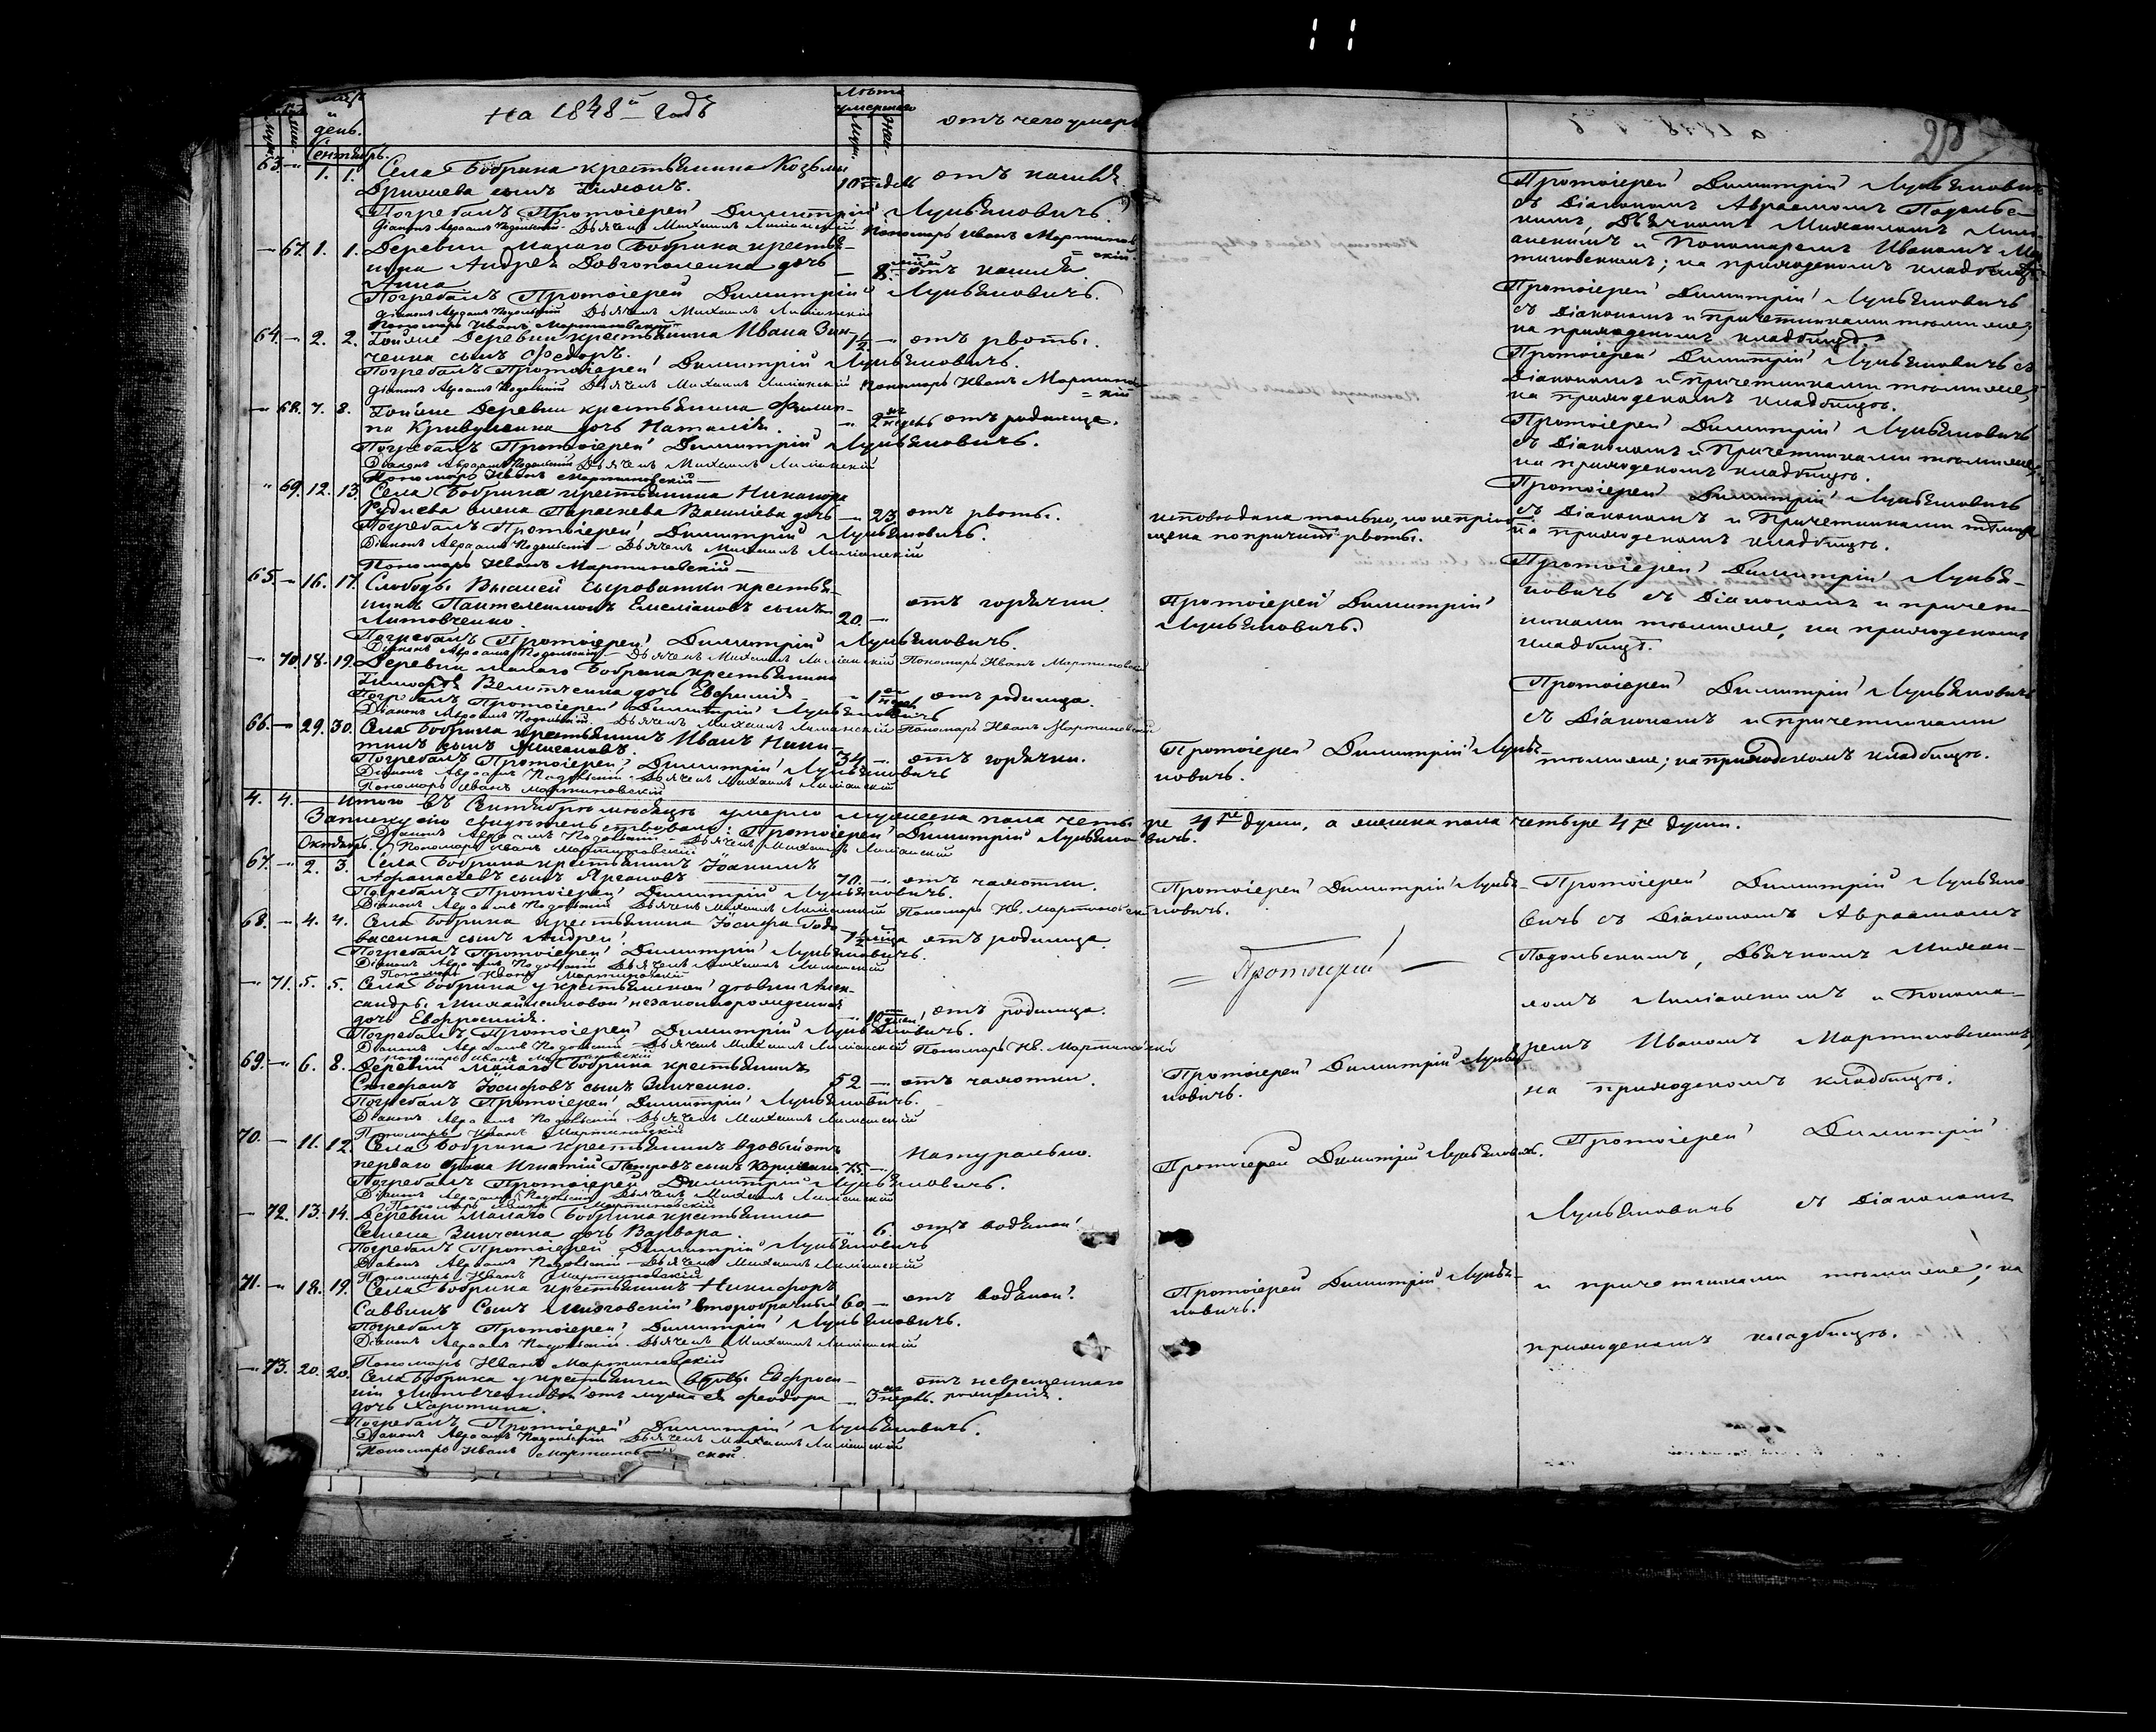 На 1848й годъ
Мѣсяцъ и день.
Лѣта умершаго
Муж.
Жен.
отъ чего умеръ
Сентябрь.
63. — 1. 1. Села Бобрика крестьянина Козьмы
сынъ Тимонъ. 10 недѣль отъ кашля
Погребалъ Протоіерей Димитрій Лукьяновичъ.
Діаконъ Авраамъ Подольскій Дьячекъ Михаилъ Пономарь Иванъ Мартиновскій
— 67. 1. 1. Деревни Малаго Бобрика крестья-
нина Андрея Довгополенка дочь
Анна. — 8. отъ кашля.
Погребалъ Протоіерей Димитрій Лукьяновичъ.
Діаконъ Авраамъ Подольскій Дьячекъ Михаилъ
Пономарь Иванъ Мартиновскій
64. — 2. 2. Тойже Деревни крестьянина Ивана Зин-
ченка сынъ Ѳедоръ. 1½ — отъ рвоты.
Погребалъ Протоіерей Димитрій Лукьяновичъ.
Діаконъ Авраамъ Подольскій Дьячекъ Михаилъ Пономарь Иванъ Мартиновскій
— 68. 7. 8. Тойже Деревни крестьянина Филип-
па Кривушенка дочь Наталія. — 2 недѣль отъ родимца.
Погребалъ Протоіерей Димитрій Лукьяновичъ.
Діаконъ Авраамъ Подольскій Дьячекъ Михаилъ
Пономарь Иванъ Мартиновскій
— 69. 12. 13. Села Бобрика крестьянина Никанора
Рудиева жена Параскева Василіева дочь — 23. отъ рвоты.
Погребалъ Протоіерей Димитрій Лукьяновичъ.
Діаконъ Авраамъ Подольскій Дьячекъ Михаилъ
Пономарь Иванъ Мартиновскій
65. — 16. 17. Слободы Вышшей Сыроватки крестья-
нинъ Пантелеимонъ Емеліановъ сынъ
Литовченко. 20. — отъ горячки.
Погребалъ Протоіерей Димитрій Лукьяновичъ.
Діаконъ Авраамъ Подольскій Дьячекъ Михаилъ Пономарь Иванъ Мартиновскій
— 70. 18. 19. Деревни малаго Бобрика крестьянина
дочь Евфимія — 1 отъ родимца.
Погребалъ Протоіерей Димитрій Лукьяновичъ
Діаконъ Авраамъ Подольскій Дьячекъ Михаилъ Пономарь Иванъ Мартиновскій
66. — 29. 30. Села Бобрика крестьянинъ Иванъ Ники-
тинъ сынъ 34 — отъ горячки.
Погребалъ Протоіерей Димитрій Лукьяновичъ
Діаконъ Авраамъ Подольскій Дьячекъ Михаилъ
Пономарь Иванъ Мартиновскій
4. 4. Итого въ Сентябрѣ мѣсяцѣ умерло мужеска пола четы ре 4ре души, а женска пола четыре 4ре души.
Записку сію свидѣтельствовалъ: Протоіерей Димитрій Лукьяно вичъ.
Діаконъ Авраамъ Подольскій Дьячекъ Михаилъ
Октябрь. Пономарь Иванъ Мартиновскій
67. — 2. 3. Села Бобрика крестьянинъ Іоакимъ
Аѳанасіевъ сынъ 70. — отъ чахотки.
Погребалъ Протоіерей Димитрій Лукьяновичъ.
Діаконъ Авраамъ Подольскій Дьячекъ Михаилъ Пономарь Ив. Мартиновскій
68. — 4. 4. Села Бобрика крестьянина Іосифа
сынъ Андрей. 1½ отъ родимца.
Погребалъ Протоіерей Димитрій Лукьяновичъ.
Діаконъ Авраамъ Подольскій Дьячекъ Михаилъ
Пономарь Иванъ Мартиновскій
— 71. 5. 5. Села Бобрика у крестьянской дѣвки Алек-
сандры незаконнорожденная
дочь Евфросинія. — 10 дней отъ родимца.
Погребалъ Протоіерей Димитрій Лукьяновичъ.
Діаконъ Авраамъ Подольскій Дьячекъ Михаилъ Пономарь Ив. Мартиновскій
69. — 6. 8. Деревни Малаго Бобрика крестьянинъ
Стефанъ Іосифовъ сынъ Зинченко. 52 — отъ чахотки.
Погребалъ Протоіерей Димитрій Лукьяновичъ.
Діаконъ Авраамъ Подольскій Дьячекъ Михаилъ
Пономарь Иванъ Мартиновскій
70. — 11. 12. Села Бобрика крестьянинъ вдовый отъ
перваго брака Игнатій Петровъ сынъ 75. — Натурально.
Погребалъ Протоіерей Димитрій Лукьяновичъ.
Діаконъ Авраамъ Подольскій Дьячекъ Михаилъ
Пономарь Иванъ Мартиновскій
— 72. 13. 14. Деревни Малаго Бобрика крестьянина
Семена Зинченка дочь Варвара. 6. отъ водяной
Погребалъ Протоіерей Димитрій Лукьяновичъ
Діаконъ Авраамъ Подольскій Дьячекъ Михаилъ
Пономарь Иванъ Мартиновскій
71. — 18. 19. Села Бобрика крестьянинъ Никифоръ
Саввинъ Сынъ второбрачный 60. — отъ водяной.
Погребалъ Протоіерей Димитрій Лукьяновичъ.
Діаконъ Авраамъ Подольскій Дьячекъ Михаилъ
Пономарь Иванъ Мартиновскій
— 73. 20. 20. Села Бобрика у крестьянки вдовы Евфроси-
ніи Литовченковой отъ мужа ея Ѳеодора
дочь Харитина. — 3 недѣль. отъ невременнаго рожденія.
Погребалъ Протоіерей Димитрій Лукьяновичъ.
Діаконъ Авраамъ Подольскій Дьячекъ Михаилъ
Пономарь Иванъ Мартиновскій
исповѣдана только, но не пріоб-
щена по причинѣ рвоты.
Протоіерей Димитрій
Лукьяновичъ.
Протоіерей Димитрій Лукья-
новичъ.
Протоіерей Димитрій Лукья-
новичъ.
= Протоіерей —
Протоіерей Димитрій Лукья-
новичъ.
Протоіерей Димитрій Лукьяновичъ.
Протоіерей Димитрій Лукья-
новичъ.
Протоіерей Димитрій Лукьяновичъ
съ Діакономъ Авраамомъ Подольс-
кимъ, Дьячкомъ Михаиломъ
и Пономаремъ Иваномъ Мар-
тиновскимъ; на приходскомъ кладбищѣ
Протоіерей Димитрій Лукьяновичъ
съ Діакономъ и причетниками тѣмиже;
на приходскомъ кладбищѣ
Протоіерей Димитрій Лукьяновичъ съ
Діакономъ и причетниками тѣмиже;
на приходскомъ кладбищѣ.
Протоіерей Димитрій Лукьяновичъ
съ Діакономъ и Причетниками тѣмиже,
на приходскомъ кладбищѣ.
Протоіерей Димитрій Лукьяновичъ
съ Діакономъ и Причетниками тѣмиже
на приходскомъ кладбищѣ.
Протоіерей Димитрій Лукья-
новичъ съ Діакономъ и причет-
никами тѣмиже, на приходскомъ
кладбищѣ.
Протоіерей Димитрій Лукьяновичъ
съ Діакономъ и причетниками
тѣмиже; на приходскомъ кладбищѣ.
Протоіерей Димитрій Лукьяно-
вичъ съ Діакономъ Авраамомъ
Подольскимъ, Дьячкомъ Михаи-
ломъ и Понома-
ремъ Иваномъ Мартиновскимъ,
на приходскомъ кладбищѣ.
Протоіерей Димитрій
Лукьяновичъ съ Діакономъ
и причетниками тѣмиже; на
приходскомъ кладбищѣ.